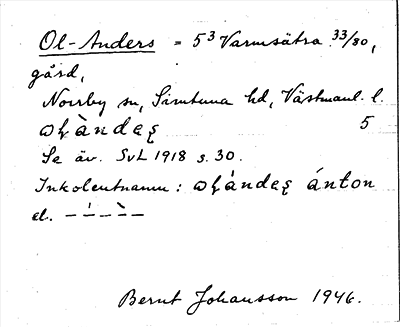 Ol-Anders = 5³ Varmsätra 33/80,
gård,
Norrby sn, Simtuna hd, Västmanl. l.
ωⱡàndeʂ 5
Se äv. SvL 1918 s. 30.
Inkolentnamn: ωⱡàndeʂ ánton
el. – –́ – –̀ –
Bernt Johansson 1946.